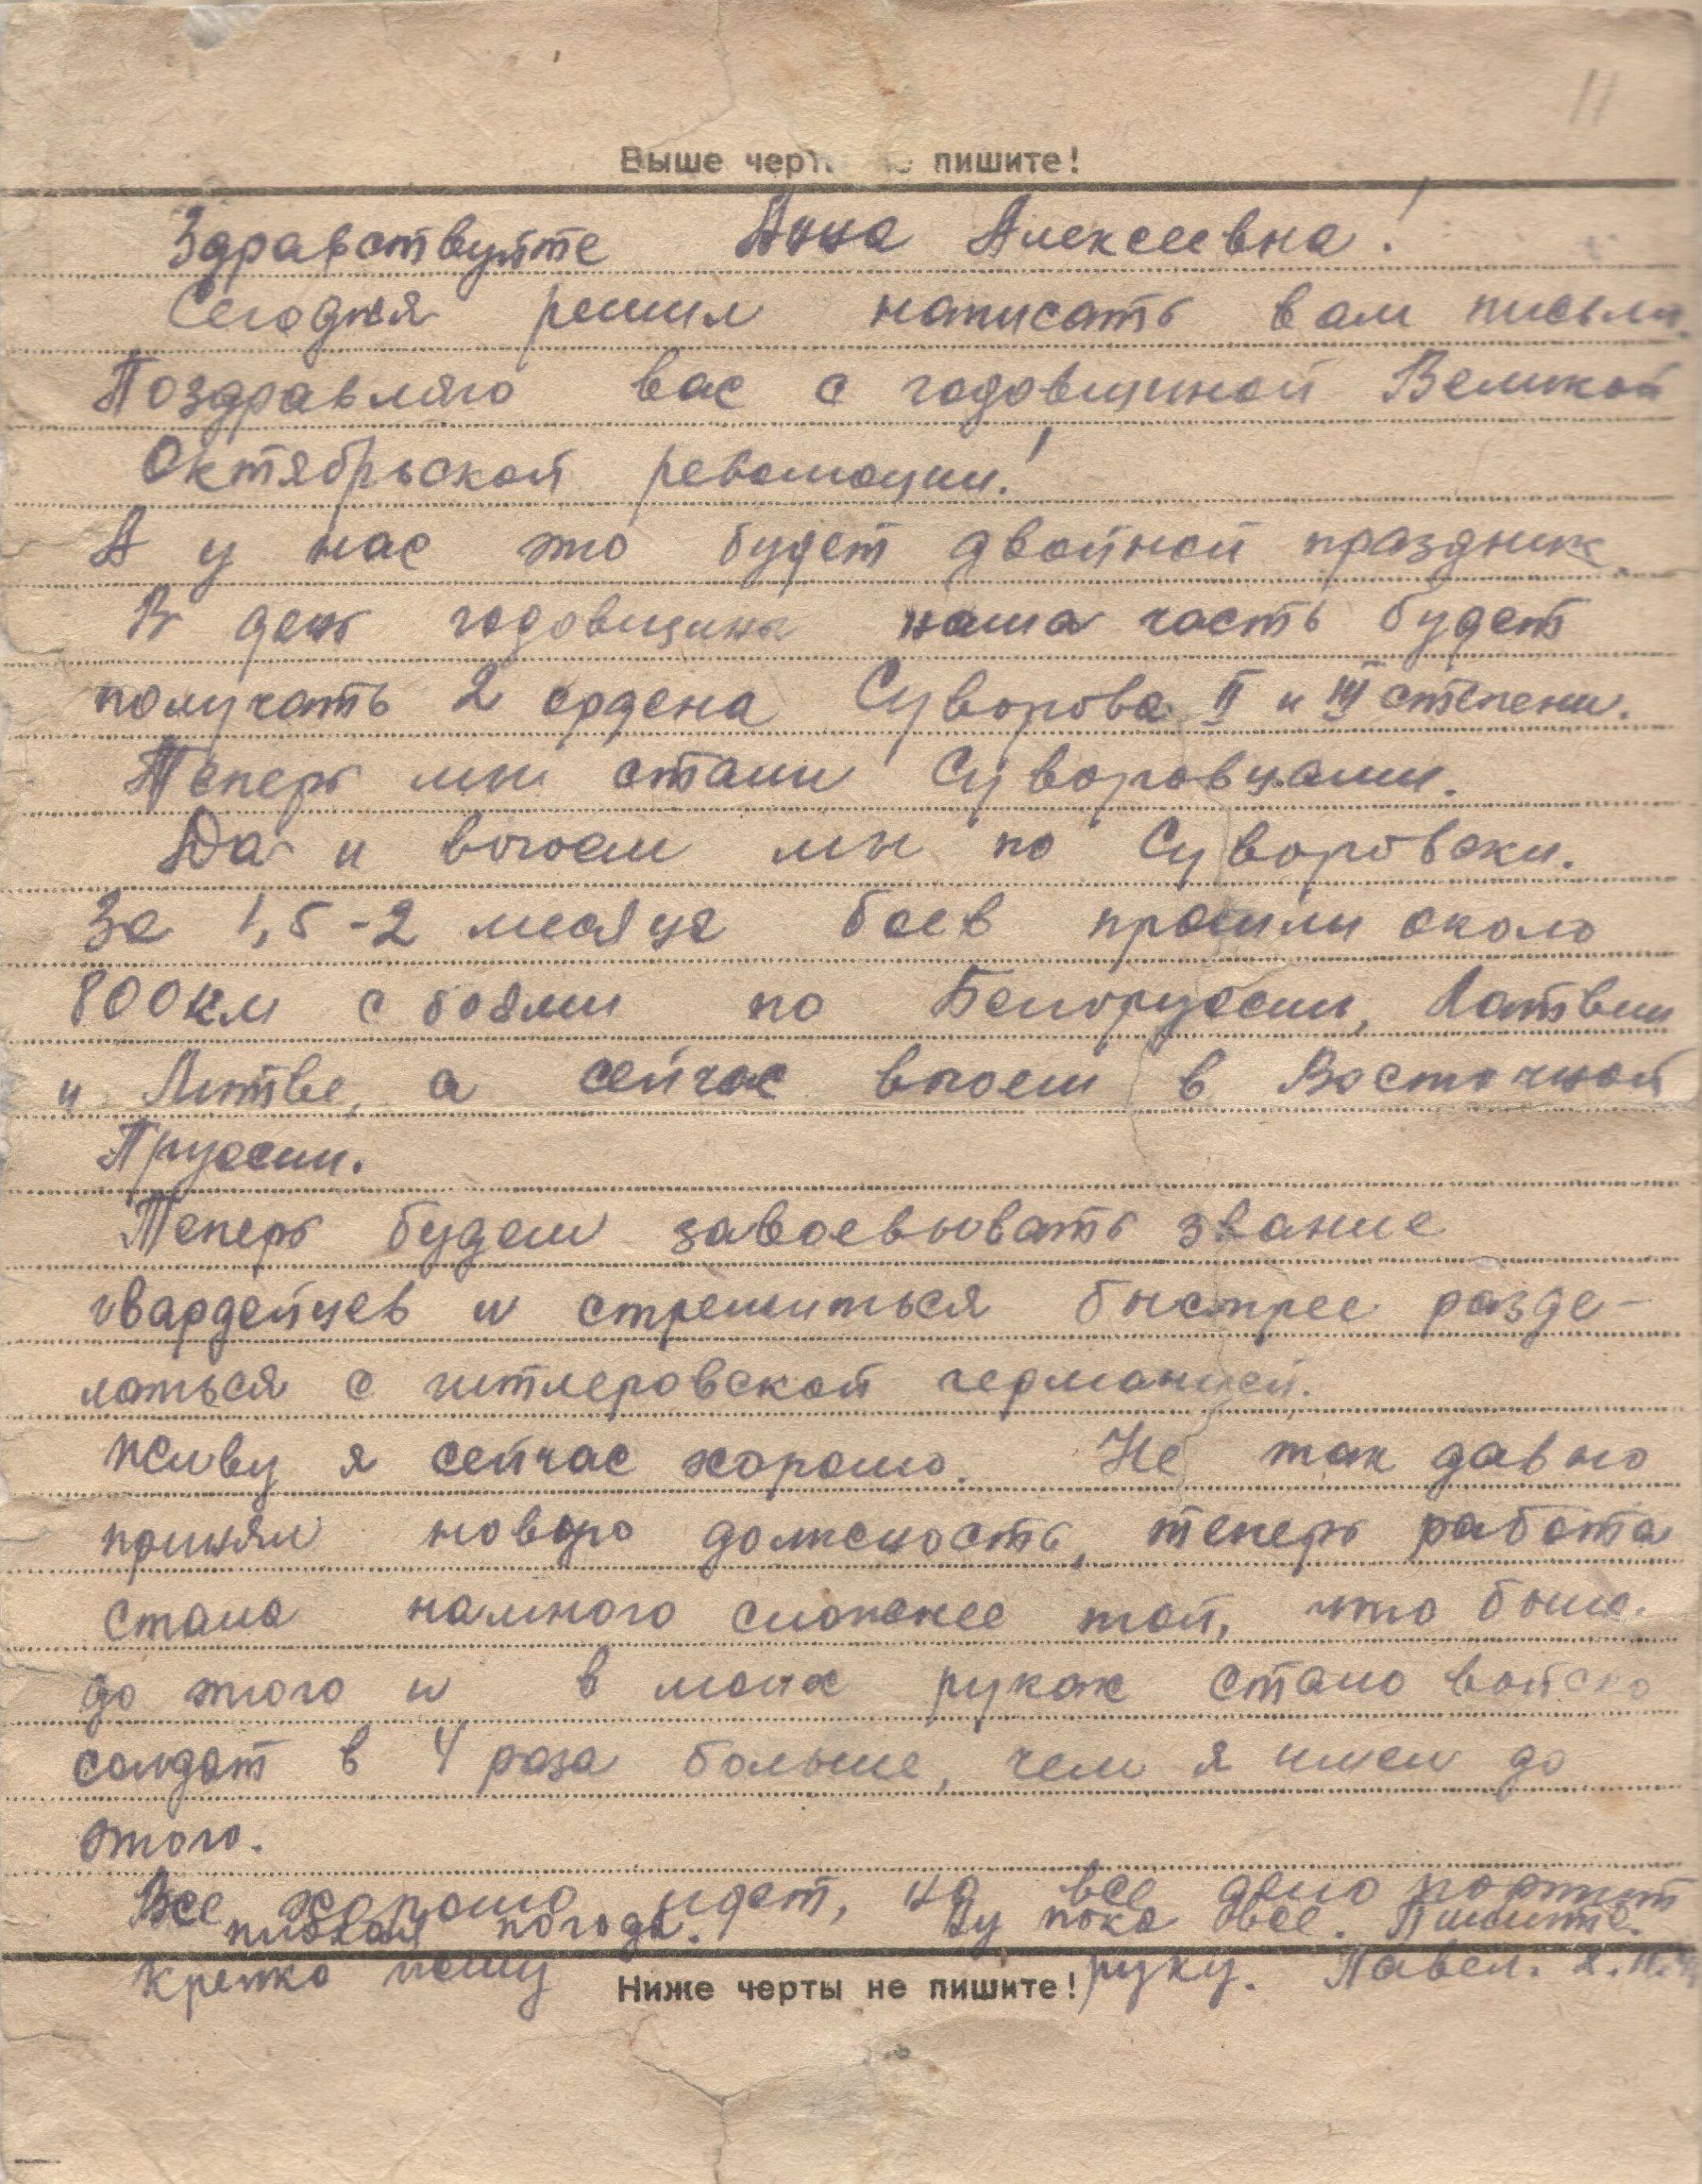 11
Выше черты не пишите!
Здравствуйте Анна Алексеевна!
Сегодня решил написать вам письмо.
Поздравляю вас с годовщиной Великой
Октябрьской революции!
А у нас это будет двойной праздник.
В день годовщины наша часть будет
получать 2 ордена Суворова II и III степени.
Теперь мы стали Суворовцами.
Да и воюем мы по Суворовски.
За 1,5-2 месяца боев прошли около
800 км с боями по Белоруссии, Латвии
и Литве, а сейчас воюем в Восточной
Пруссии.
Теперь будем завоевывать звание
гвардейцев и стремиться быстрее разде-
латься с гитлеровской германией.
Живу я сейчас хорошо. Не так давно
принял новую должность, теперь работа
стала намного сложнее той, что была
до этого и в моих руках стало войско
солдат в 4 раза больше, чем я имел до
этого.
Все хорошо идет, но все дело портит
погода. Ну пока все. Пишите.
Крепко жму руку. Павел. 2.11.
Ниже черты не пишите!